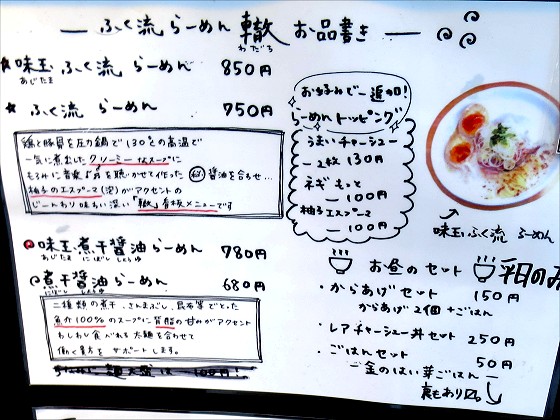 ふく流 らーめん 轍 お品書き
わだち
味玉 ふく流 らーめん 850円
あじたま
ふく流 らーめん 750円
鶏と豚骨を圧力鍋で130℃の高温で
一気に煮出した クリーミーなスープに
醤油を合わせ…
柚子のエスプーマ(泡)がアクセントの
じーんわり味わい深い「轍」看板メニューです
味玉 煮干醤油らーめん 780円
あじたま にぼし しょうゆ
煮干醤油 らーめん 680円
にぼし しょうゆ
二種類の煮干、さんまぶし、昆布等でとった
魚介100%のスープに背脂の甘みがアクセント
わしわし食べれる太麺を合わせて
働く貴方を サポートします。
お好みで一追加!
らーめんトッピング
うまいチャーシュー
2枚 130円
ネギ もっと
100円
柚子エスプーマ
100円
味玉 ふく流 らーめん
お昼のセット 平日のみ
・からあげセット 150円
からあげ2個+ごはん
・レアチャーシュー丼セット 250円
・ごはんセット 50円
金のはい芽ごはん
裏もあり〼